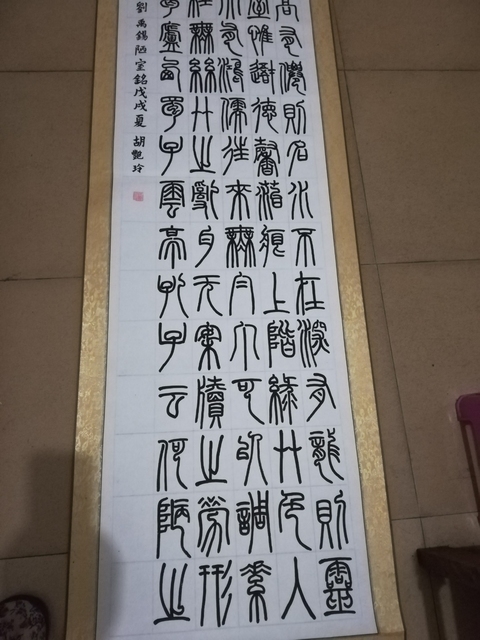 高有僊則名水不在深有龍則靈
室惟吾德馨苔痕上階綠艸色入
有鴻儒往來無白丁可以調素
經無絲竹之亂耳无案牘之勞形
廬西蜀子雲亭孔子云何陋之
劉禹錫陋室銘戊戌夏 胡艷玲